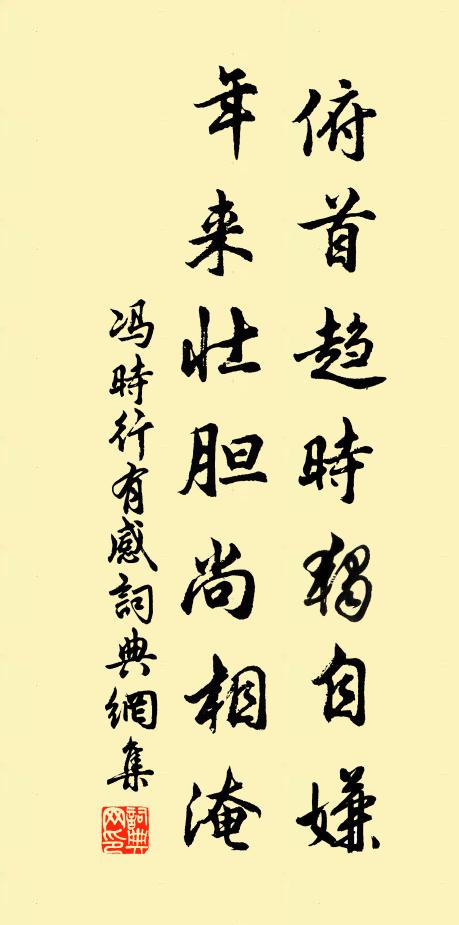 俯首趋時獨自嫌
年来壮胆尚相淹
冯時行有感詞典網集
詞典网印